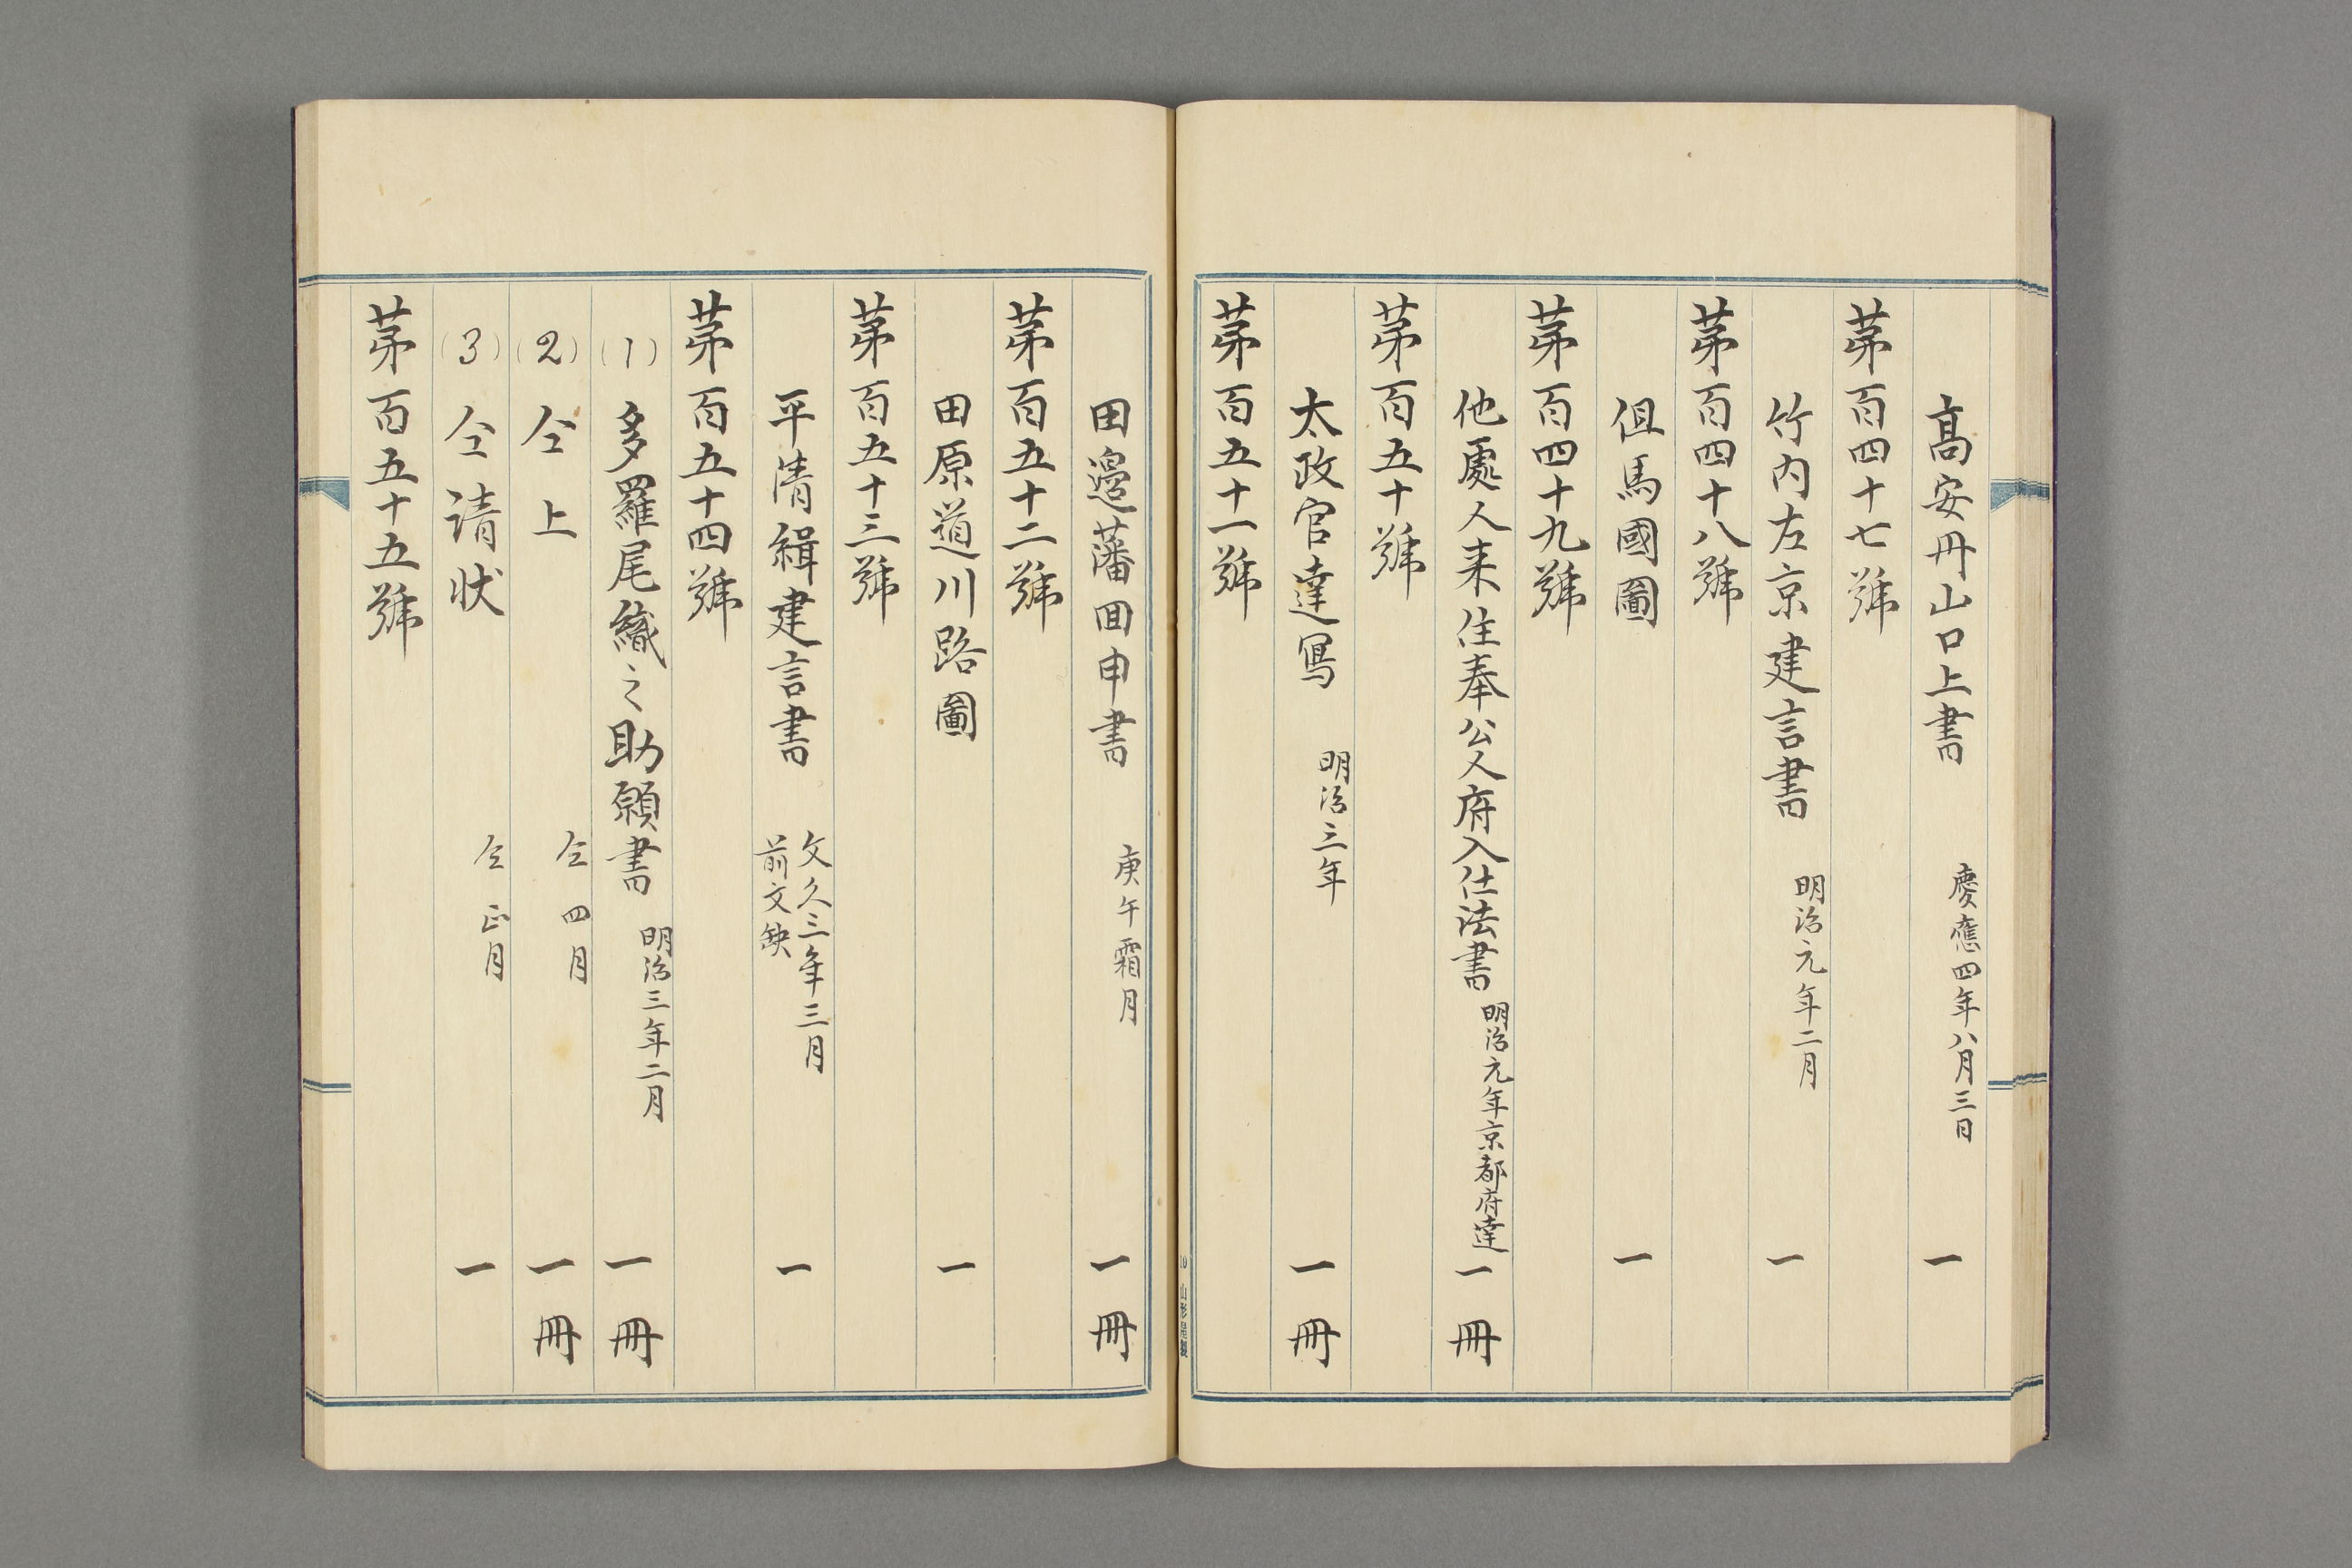 高安丹山口上書 慶應四年八月三日 一
苐百四十七號
竹内左京建言書 明治元年二月 一
苐百四十八號
但馬國圖 一
苐百四十九號
他處人来住奉公人府入仕法書 明治元年京都府達 一冊
苐百五十號
太政官達寫 明治三年 一冊
苐百五十一號
田邉藩回申書 庚午霜月 一冊
苐百五十二號
田原道川路圖 一
苐百五十三號
平清緝建言書 文久三年三月 一
前文缺
苐百五十四號
(1) 多羅尾織之助願書 明治三年二月 一冊
(2) 仝上 仝四月 一冊
(3) 仝请状 仝正月 一
苐百五十五號